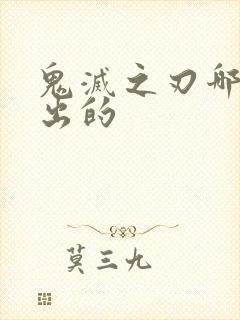 鬼滅之刃哪
出的
莫三九